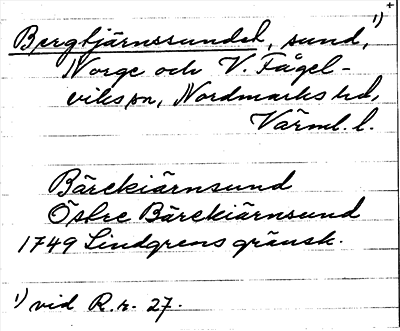 Bergtjärnssundet, sund, 1) +
Norge och V. Fågel-
viks sn, Nordmarks hd,
Värml. l.
Bärckiärnsund
Östre Bärckiärnsund
1749 Lindgrens gränsk.
1) vid R.r. 27.